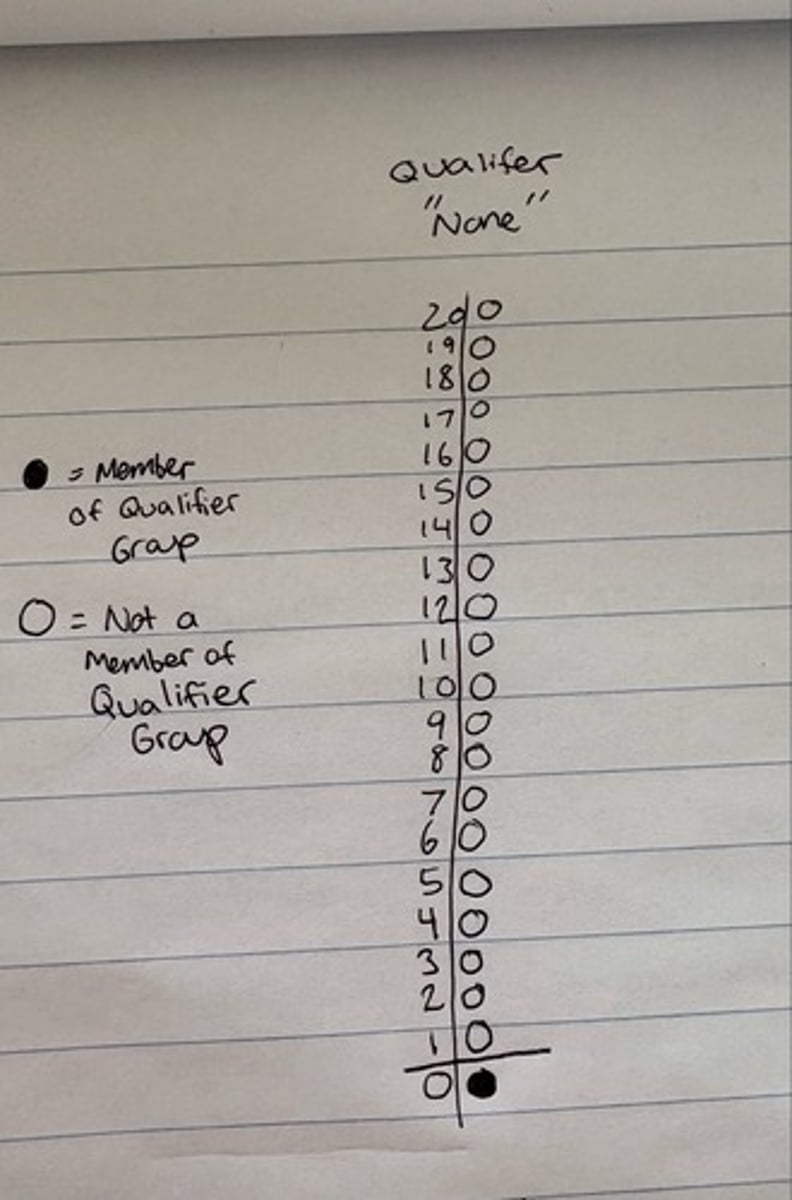 Qualifer
"None"
20 O
19 O
18 O
17 O
16 O
● = Member
15 O
of Qualifier
14 O
Group
13 O
O = Not a
12 O
Member of
11 O
Qualifier
10 O
Group
9 O
8 O
7 O
6 O
5 O
4 O
3 O
2 O
1 O
0 ●